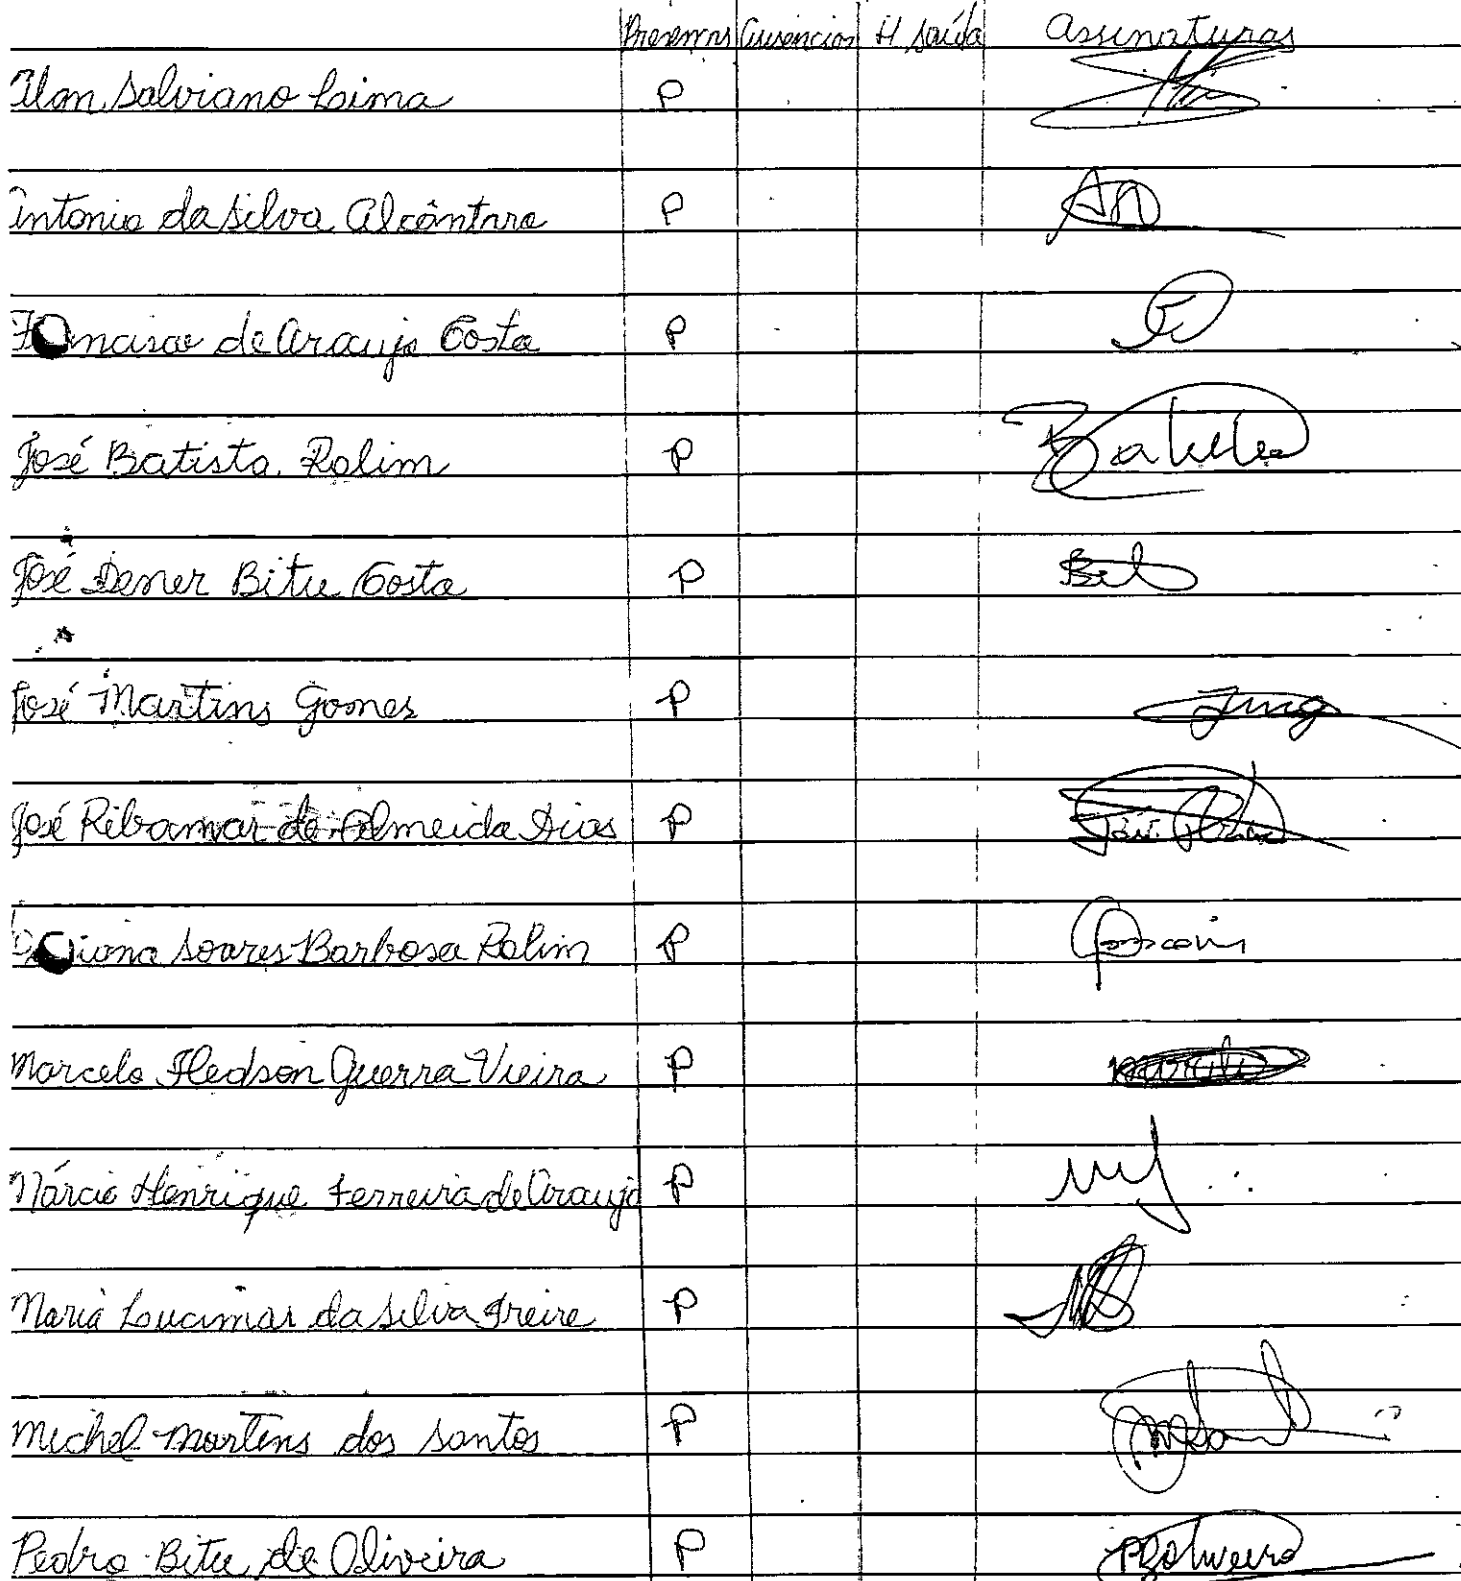 Presenças Ausências H. saída Assinaturas
Alan Salviano Lima P
Antonio da Silva Alcântara P
Francisco de Araujo Costa P
José Batista Rolim P Batista
José Dener Bitu Costa P Bitu
José Martins Gomes P JMG
José Ribamar de Almeida Dias P José
iana Soares Barbosa Rolim P
Marcelo Fledson Guerra Vieira P Marcelo
Márcio Henrique Ferreira de Araujo P
Maria Lucimar da Silva Freire P
Michel Martins dos Santos P
Pedro Bitu de Oliveira P PBOliveira